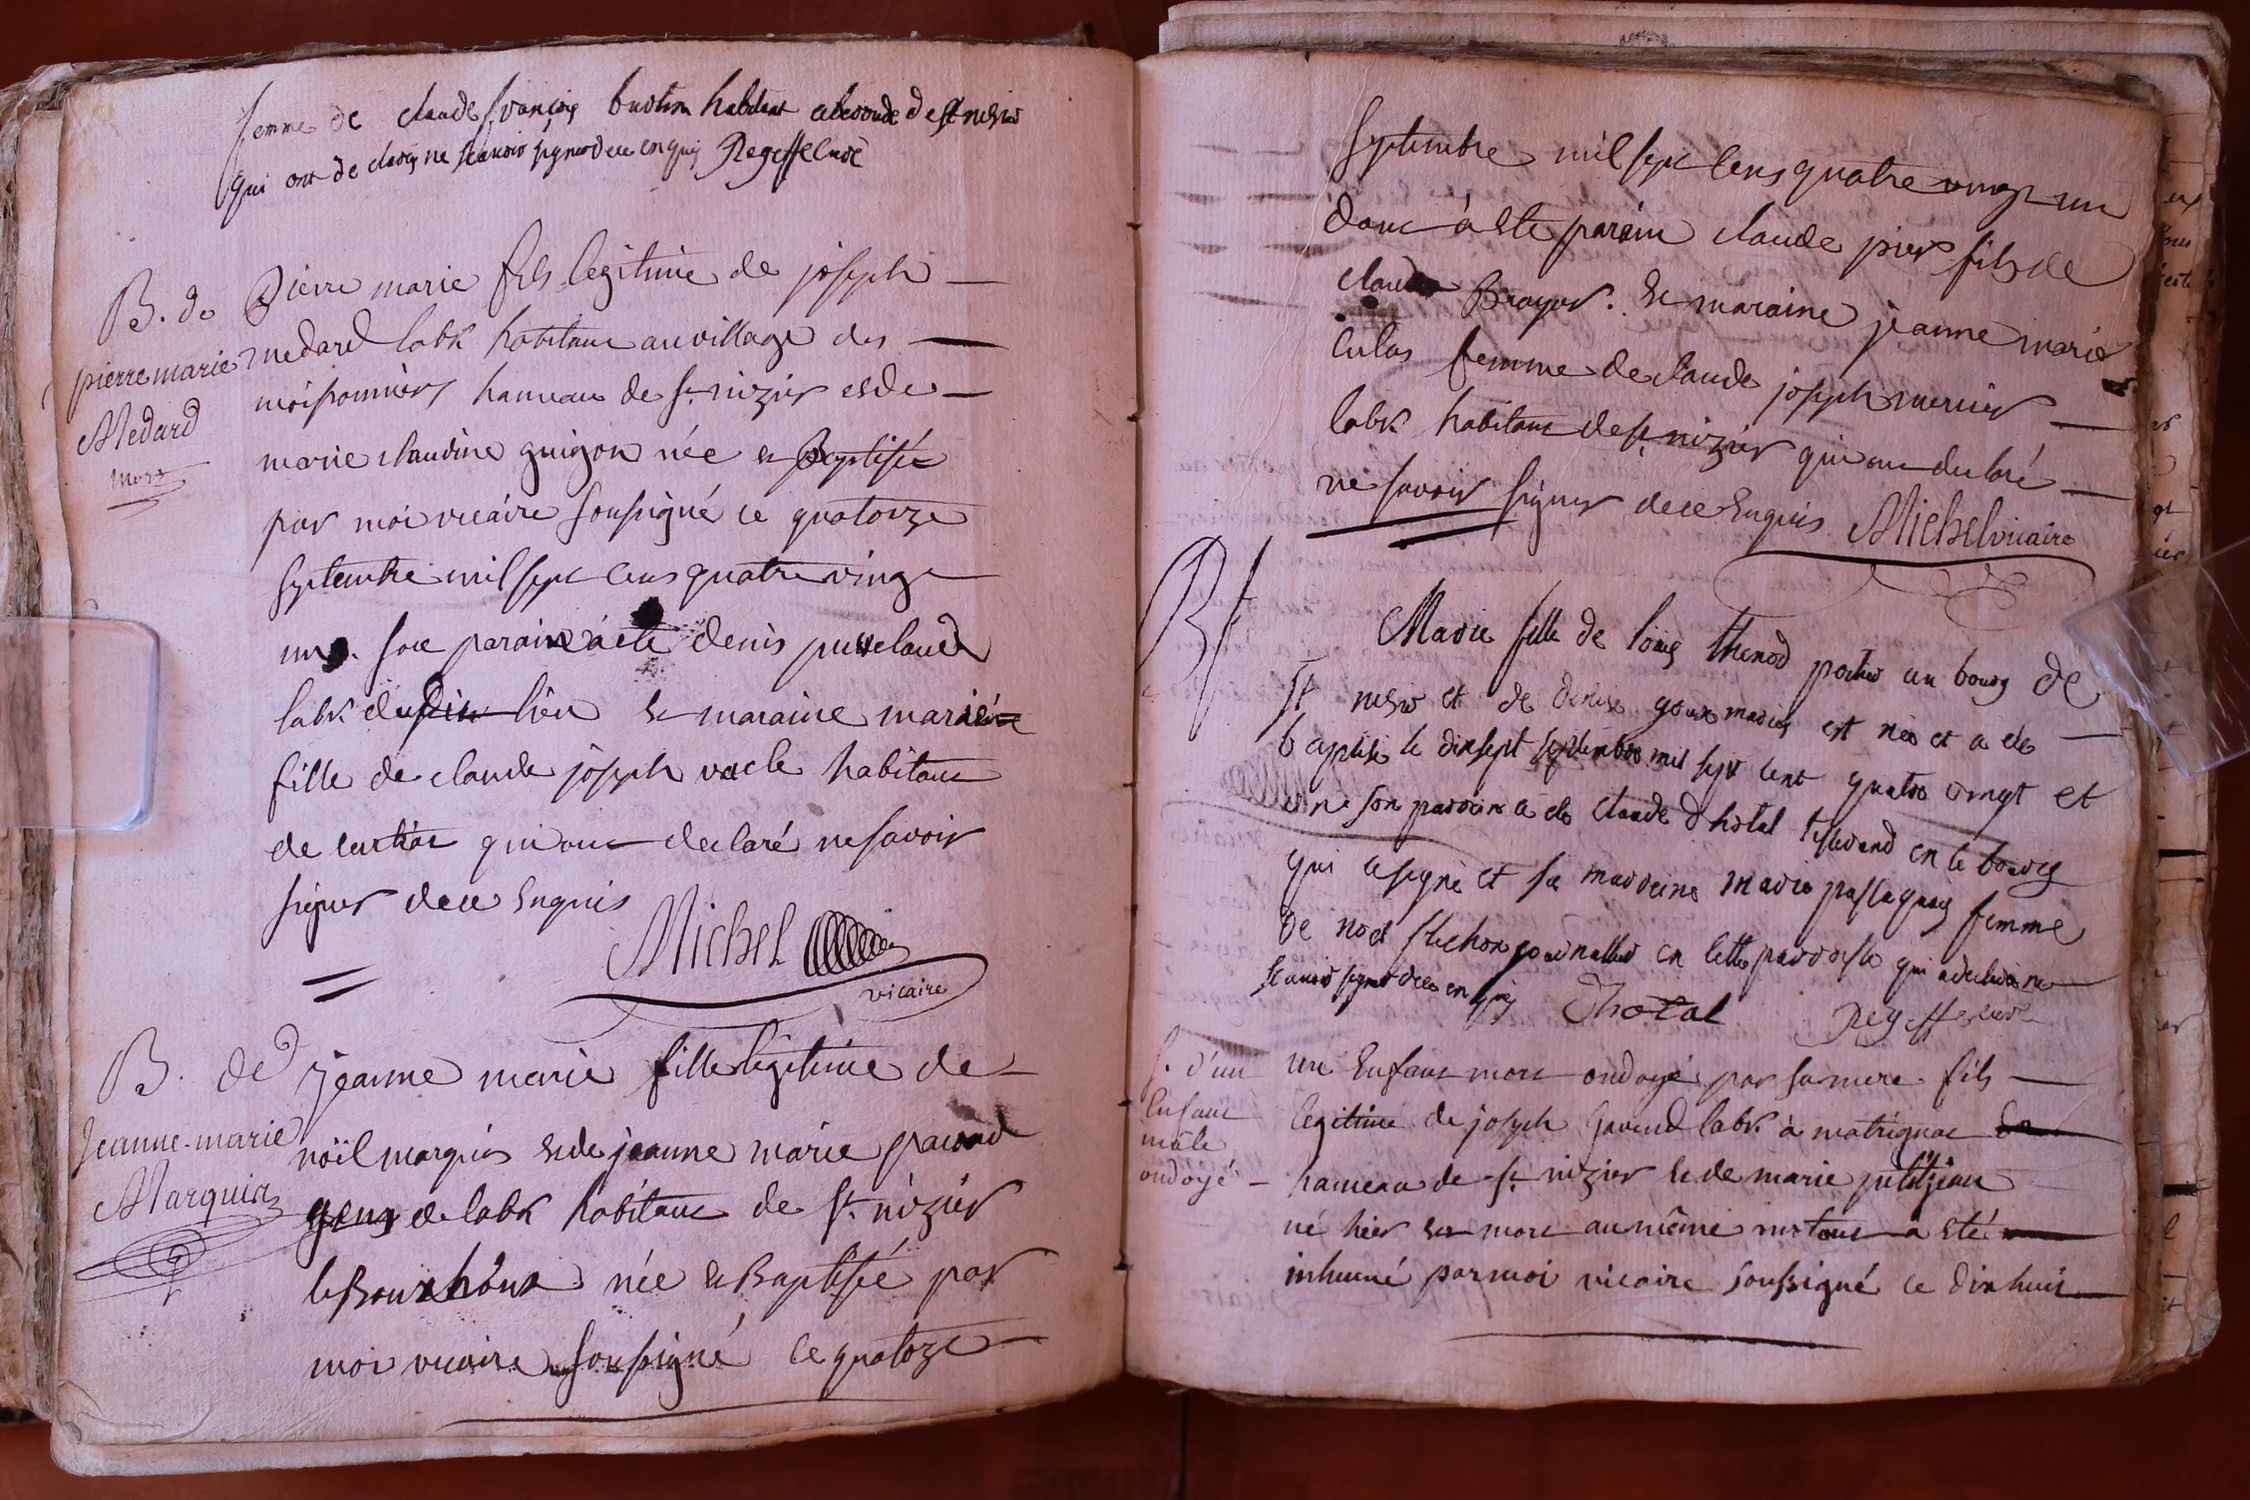 femme de claude françois buotion habitant de st nisier
qui ont declarés ne scavoir signer de ce enquis Regeffe curé
B. de
pierre marie
Medard
mort
Pierre marie fils legitime de joseph
medard labr. habitant au village des
moissonniers hameau de st. nizier et de
marie claudine guigon née et Baptisée
par moi vicaire soussigné ce quatorze
septembre mil sept cens quatre vingt
un. son parain a été denis puvelaud
labr. du dit lieu et maraine marie
fille de claude joseph vacle habitant
de curtiat qui ont declaré ne savoir
signer de ce enquis
Michel
vicaire
B. de
Jeanne-marie
Marquis
jeanne marie fille legitime de
noël marquis et de jeanne marie
gens de labr habitant de st. nizier
le Bouchoux née et Baptisée par
moi vicaire soussigné ce quatorze
septembre mil sept cens quatre vingt un
dont à été parain claude pierre fils de
claude Broyer. et maraine jeanne marie
culas femme de claude joseph mercier
labr. habitant de st. nizier qui ont declaré
ne savoir signer de ce Enquis Michel vicaire
B
Marie fille de loüis thenod portier au bourg de
st nisier et de denise est née et a été
baptisée le dix sept septembre mil sept cent quatre vingt et
un son parrain a été claude d hotal tisserand en le bourg
qui a signé et sa marraine marie femme
de noel journallier en cette parroisse qui a declaré ne
scavoir signer de ce en quis Dhotal Regeffe curé
S. d'un
Enfant
mâle
ondoyé
un Enfant mort ondoyé par sa mere. fils
legitime de joseph savend labr. à matrignat
hameau de st. nizier et de marie petitjean
né hier et mort au même instant a été
inhumé par moi vicaire soussigné ce dix huit